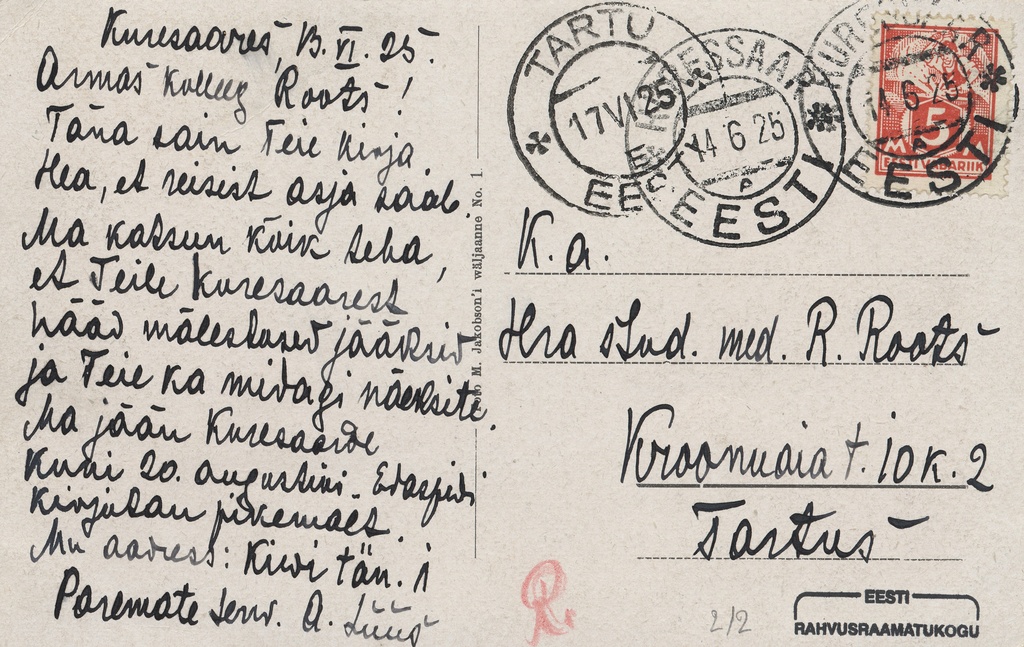 Kuresaares, 13. VI. 25.
Armas kolleeg Roots!
Täna sain Teie kirja.
Hea, et reisist asja saab.
Ma katsun kõik teha,
et Teile Kuresaarest
hääd mälestused jääksid
ja Teie ka midagi näeksite.
Ma jään Kuresaarde
kuni 20. augustini. Edaspidi
kirjutan pikemalt.
Mu aadress: Kiwi tän. 1
Paremate terv. A. Lüüs
Foto M. Jakobson'i wäljaanne No. 1.
TARTU
17 VI 25
EESTI
KURESSAAR
14 6 25
EESTI
KURESSAAR
14 6 25
EESTI
5
EESTI VABARIIK
K. a.
Hra stud. med. R. Roots
Kroonuaia t. 10 k. 2
Tartus
R.
2/2
EESTI
RAHVUSRAAMATUKOGU